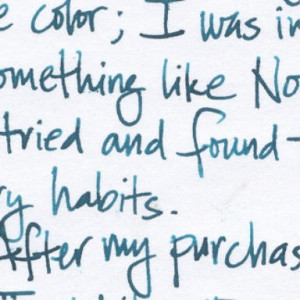 e color; I was in
omething like No
tried and found-
ry habits.
After my purchas